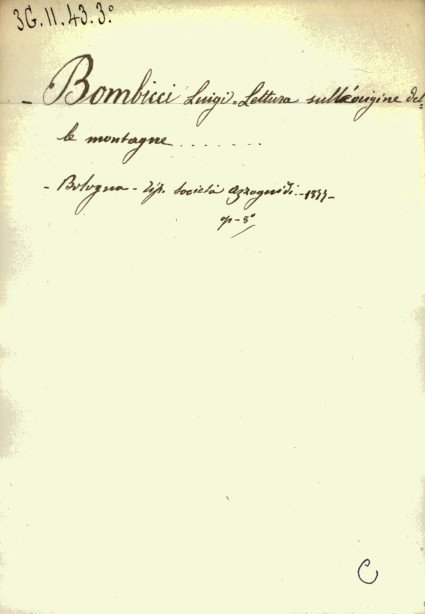 3G.II.43.3°
- Bombicci Luigi - Lettura sull'origine del=
le montagne .......
- Bologna - Tip. Società Azzoguidi - 1877 -
op - 8°
C